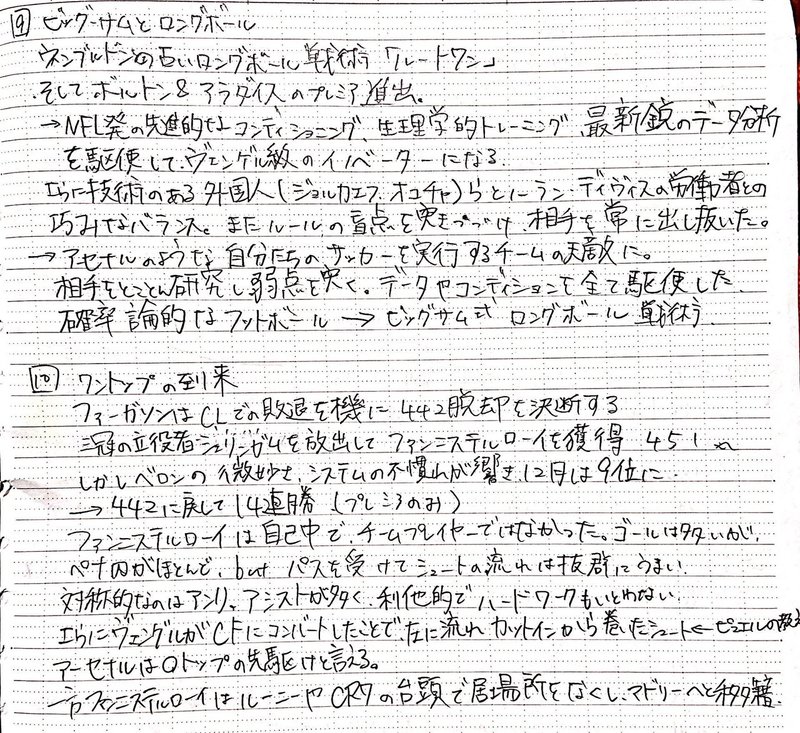 9 ビッグ・サムとロングボール
ウィンブルドンの古いロングボール戦術「ルートワン」
そしてボルトン&アラダイスのプレミア進出。
→NFL発の先進的なコンディショニング、生理学的トレーニング、最新鋭のデータ分析
を駆使して、ヴェンゲル級のイノベーターになる
さらに技術のある外国人(ジョルカエフ、オコチャ)らとノーラン・デイヴィスの労働者との
巧みなバランス。またルールの盲点を突きつづけ、相手を常に出し抜いた。
→アーセナルのような自分たちのサッカーを実行するチームの天敵に。
相手をとことん研究し弱点を突く。データやコンディションを全て駆使した
確率論的なフットボール→ビッグサム式ロングボール戦術
10 ワントップの到来
ファーガソンはCLでの敗退を機に442脱却を決断する
三冠の立役者シェリンガムを放出してファンニステルローイを獲得 451へ
しかしベロンの微妙さ、システムの不慣れが響き、12月は9位に
→442に戻して14連勝(プレミアのみ)
ファンニステルローイは自己中で、チームプレイヤーではなかった。ゴールは多いが、
ペナ内がほとんど、but パスを受けてシュートの流れは抜群にうまい。
対称的なのはアンリ。アシストが多く、利他的でハードワークもいとわない。
さらにヴェンゲルがCFにコンバートしたことで、左に流れカットインから巻いたシュート←ピュエルの教え
アーセナルは0トップの先駆けと言える。
一方ファンニステルローイはルーニーやCR7の台頭で居場所をなくし、マドリーへと移籍.